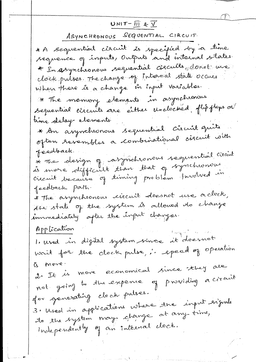 UNIT-III & V
ASYNCHRONOUS SEQUENTIAL CIRCUIT
* A sequential circuit is specified by a time
sequence of inputs, Outputs and internal states.
* In asynchronous sequential circuits, donot use
clock pulses. The change of Internal state occurs
when there is a change in input variables.
* The memory elements in asynchronous
sequential circuits are either unclocked, flip flops or
time delay elements.
* An asynchronous sequential circuit quits
often resembles a combinational circuit with
feedback.
* The design of asynchronous sequential circuit
is more difficult than that of synchronous
circuit because of timing problem involved in
feedback path.
* The asynchronous circuit doesnot use a clock,
the state of the system is allowed to change
immediately after the input changes
Application
1. used in digital system since it doesnot
wait for the clock pulse, ∴ speed of operation
is more.
2. It is more economical since they are
not going to the expense of providing a circuit
for generating clock pulses.
3. Used in applications where the input signals
to the system may change at any time,
Independently of an internal clock.